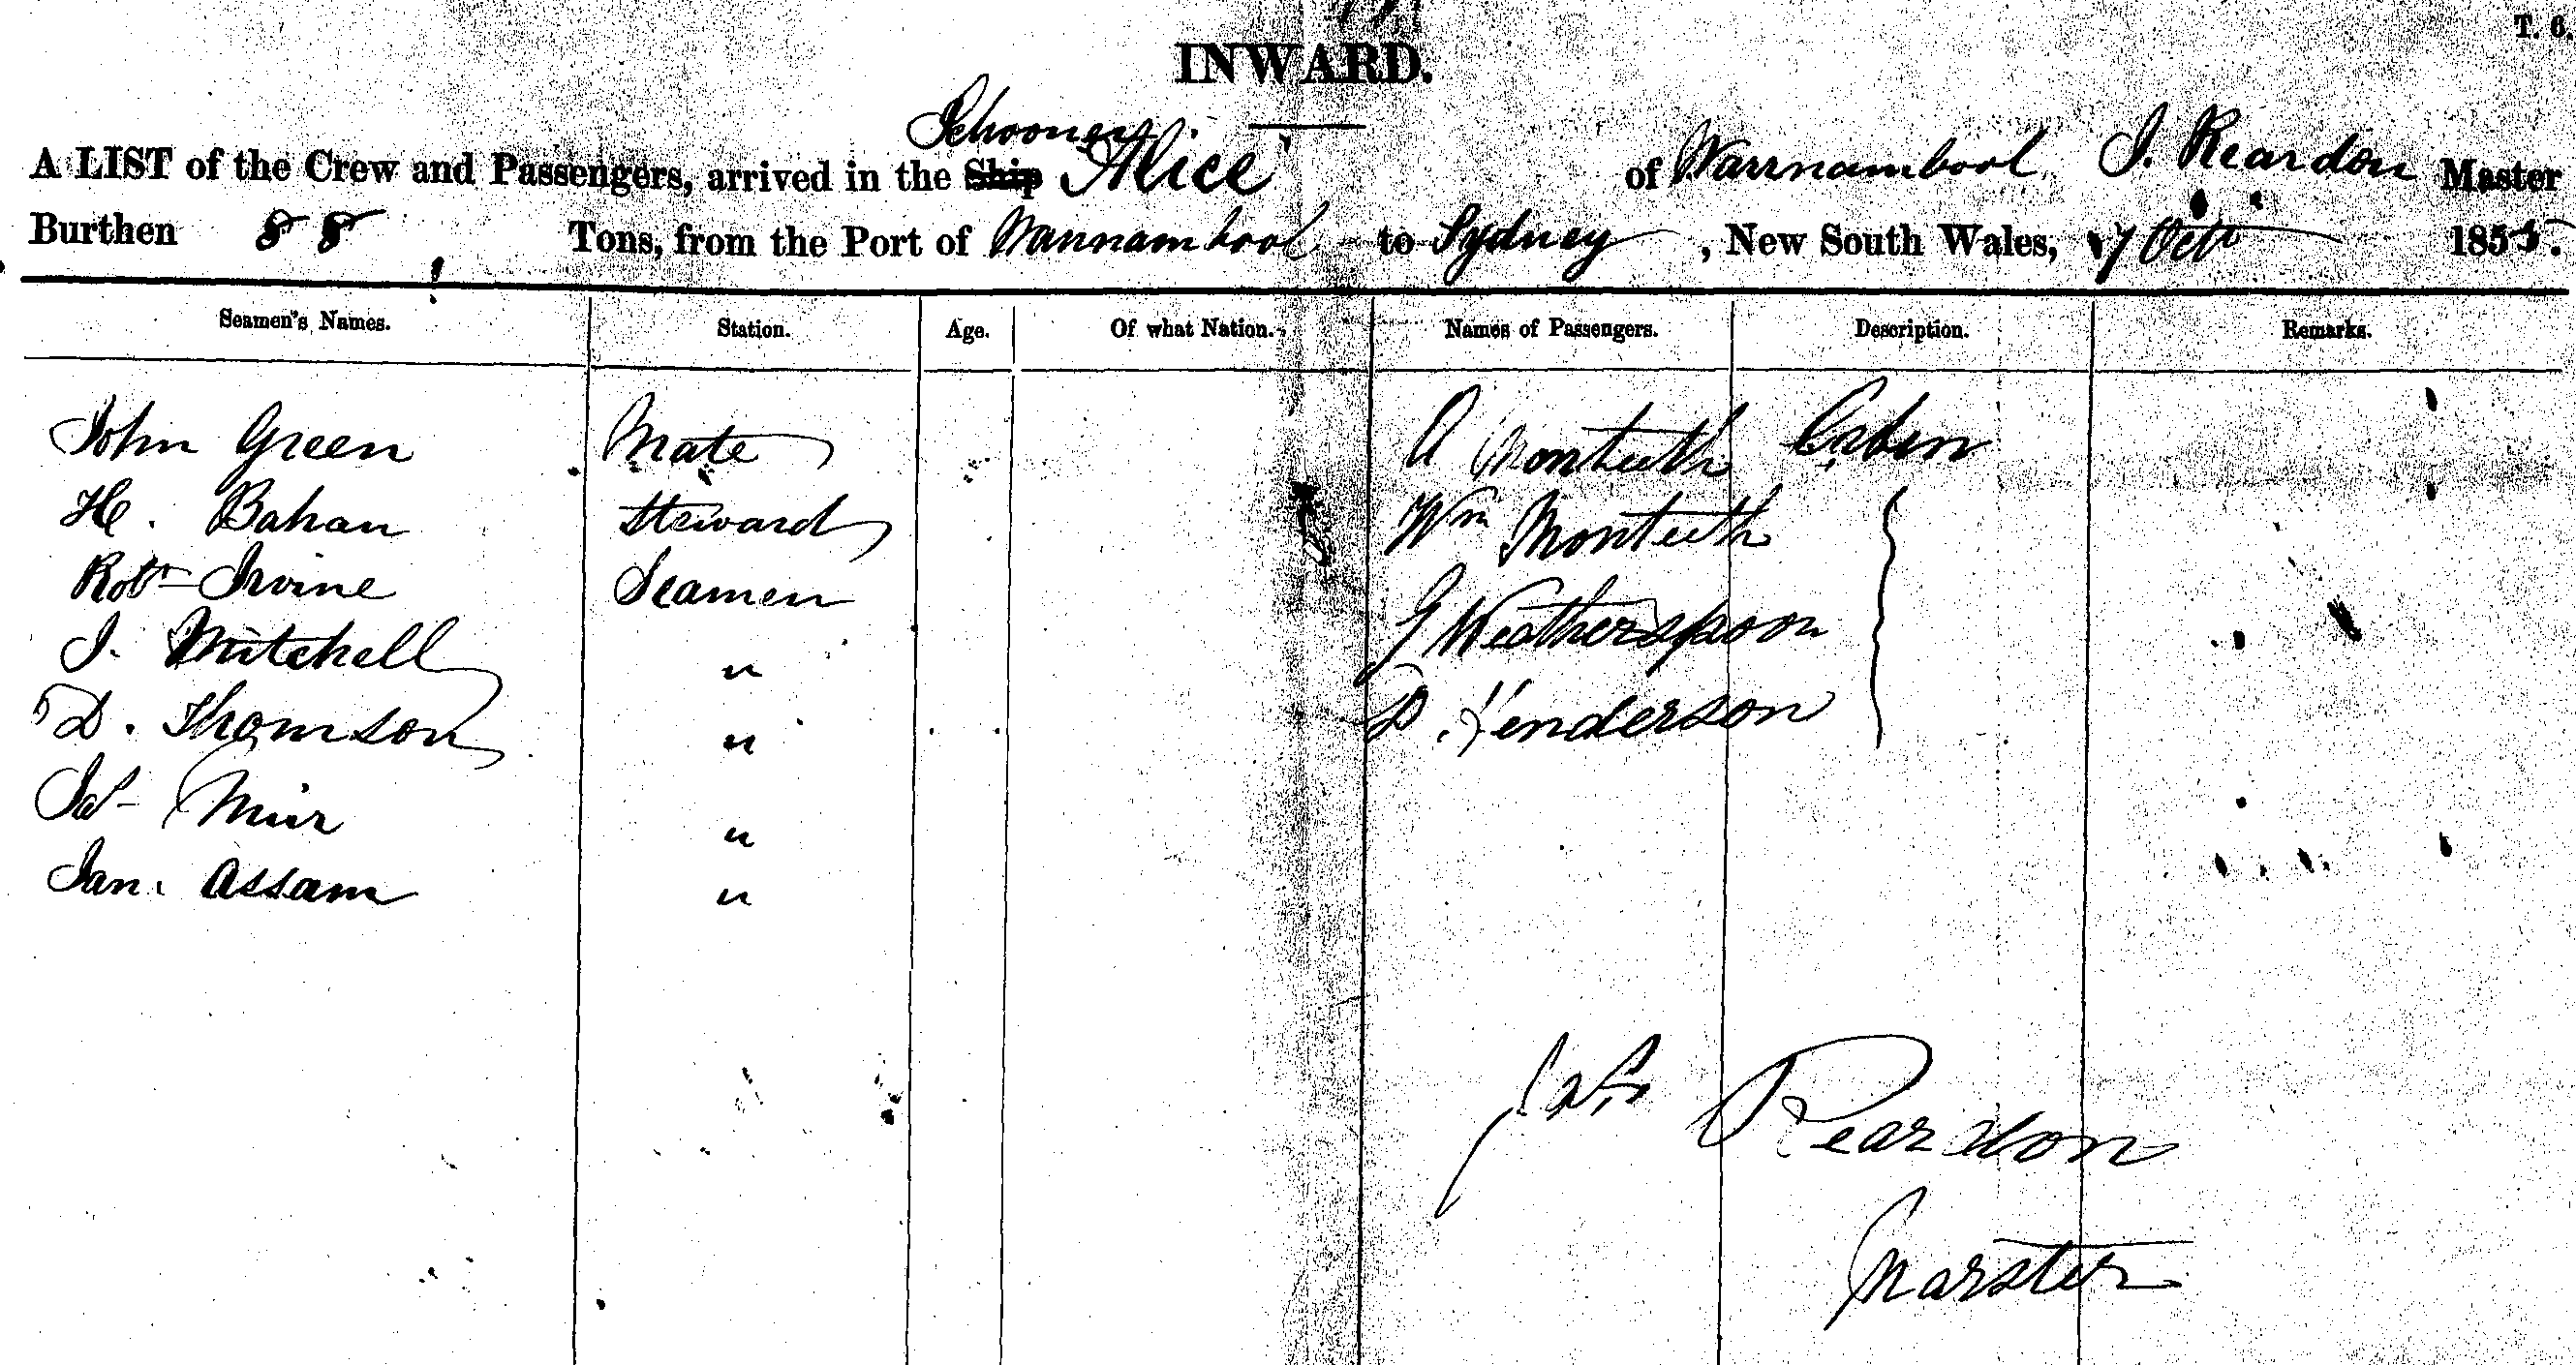 T. 6.
INWARD.
Schooner
A LIST of the Crew and Passengers, arrived in the Ship Alice of Warrnambool J. Reardon Master
Burthen 88 Tons, from the Port of Warrnambool to Sydney, New South Wales, 17 Octr 1855.
Seamen's Names. Station. Age. Of what Nation. Names of Passengers. Description. Remarks.
John Green Mate A Monteith Cabin
H. Bahan Steward Wm Monteith
Robt Irvine Seamen G Weatherspoon
J. Mitchell " D. Henderson
D. Thomson "
Jas Muir "
Jan. Assam "
Jas Reardon
Marster